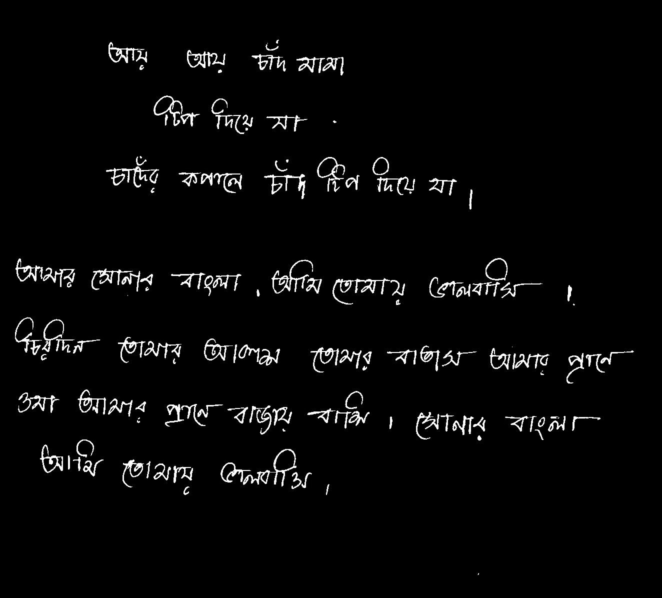 আয় আয় চাঁদ মামা
টিপ দিয়ে যা .
চাঁদের কপালে চাঁদ টিপ দিয়ে যা।
আমার সোনার বাংলা, আমি তোমায় ভালবাসি ।
চিরদিন তোমার আকাশ তোমার বাতাস আমার প্রানে
ওমা আমার প্রানে বাজায় বাশি । সোনার বাংলা
আমি তোমায় ভালবাসি।